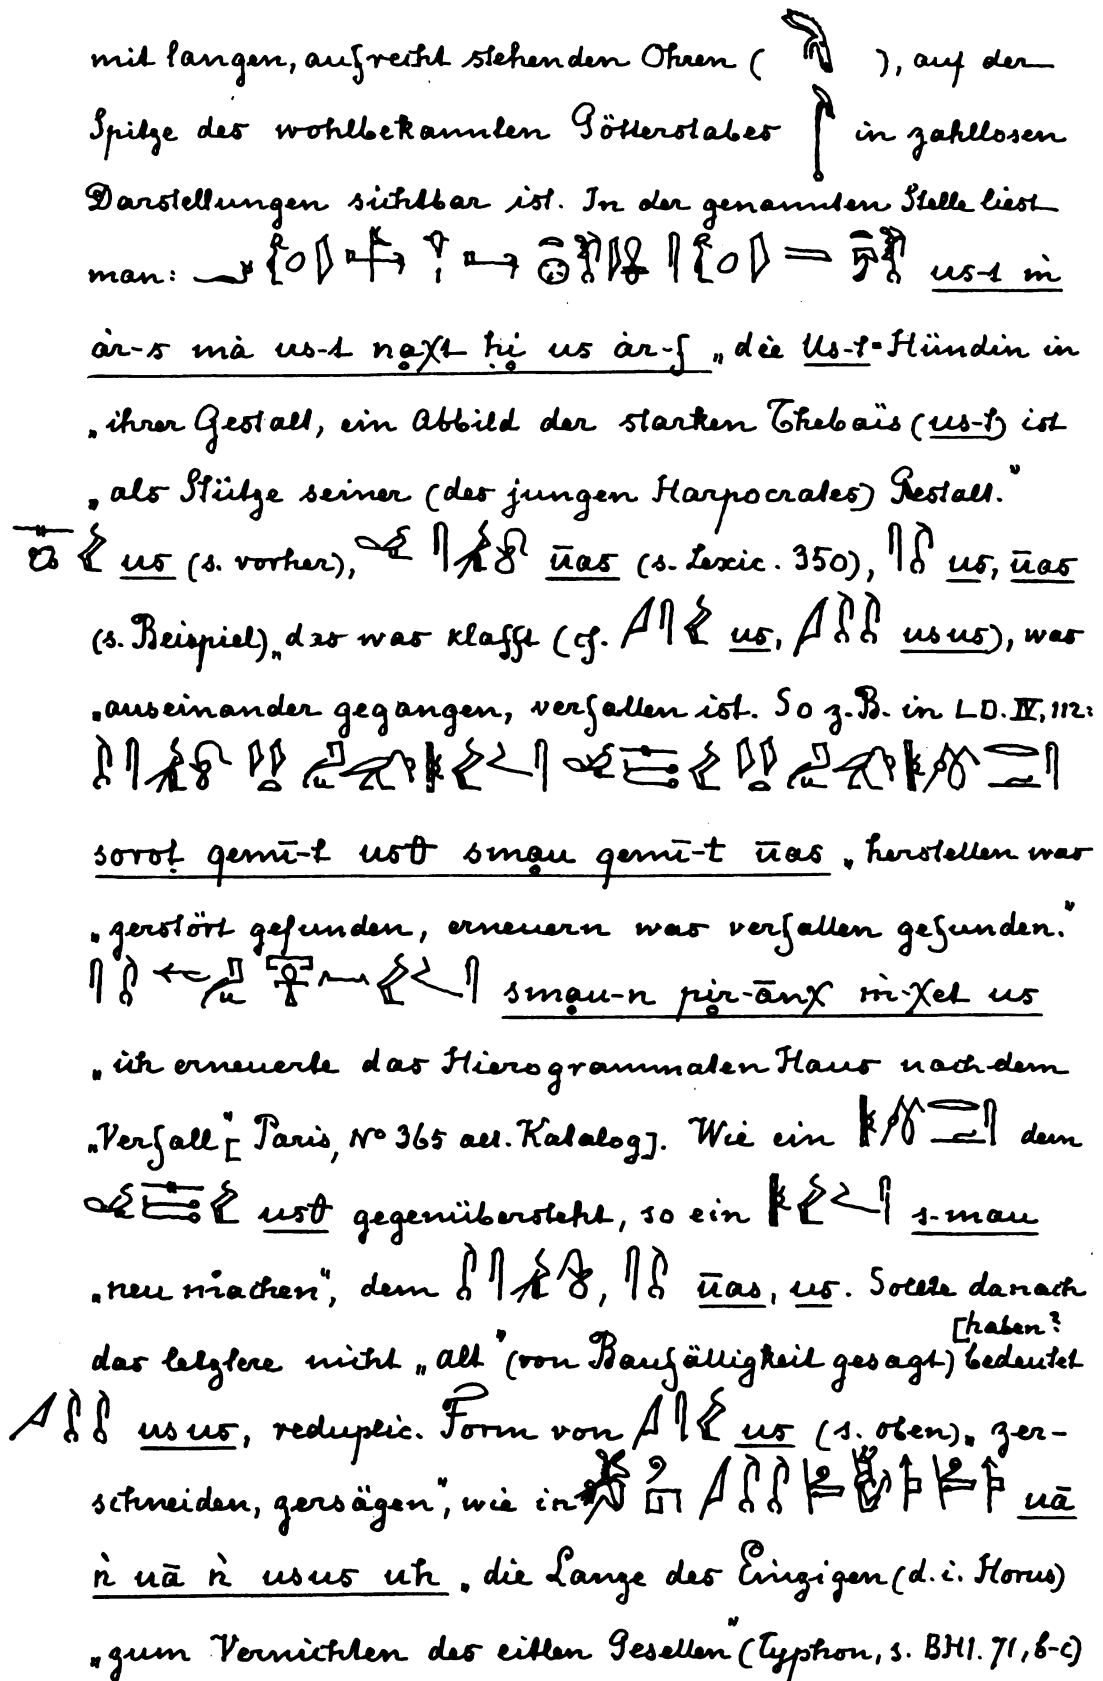 mit langen, aufrecht stehenden Ohren ( ), auf der
Spitze des wohlbekannten Götterstabes in zahllosen
Darstellungen sichtbar ist. In der genannten Stelle liest
man: us-t ṁ
ȧr-s mȧ us-t us ȧr-f „die Us-t-Hündin in
„ihrer Gestalt, ein Abbild der starken Thebaïs (us-t) ist
„als Stütze seiner (des jungen Harpocrates) Gestalt."
us (s. vorher), ūas (s. Lexic. 350), us, ūas
(s. Beispiel) „das was klafft (cf. us, usus), was
„auseinander gegangen, verfallen ist. So z. B. in LD. IV, 112:
qemī-t qemī-t ūas „herstellen was
„zerstört gefunden, erneuern was verfallen gefunden."
us
„ich erneuerte das Hierogrammaten Haus nach dem
„Verfall" [Paris, No 365 aeg. Katalog]. Wie ein dem
gegenübersteht, so ein s-mau
„neu machen", dem ūas, us. Sollte danach
[haben?
das letztere nicht „alt" (von Baufälligkeit gesagt) bedeutet
usus, reduplic. Form von us (s. oben) „zer-
schneiden, zersägen", wie in uā
ṅ uā ṅ usus uh „die Lanze des Einzigen (d. i. Horus)
„zum Vernichten des eitlen Gesellen" (Typhon, s. BHI. 71, b-c)